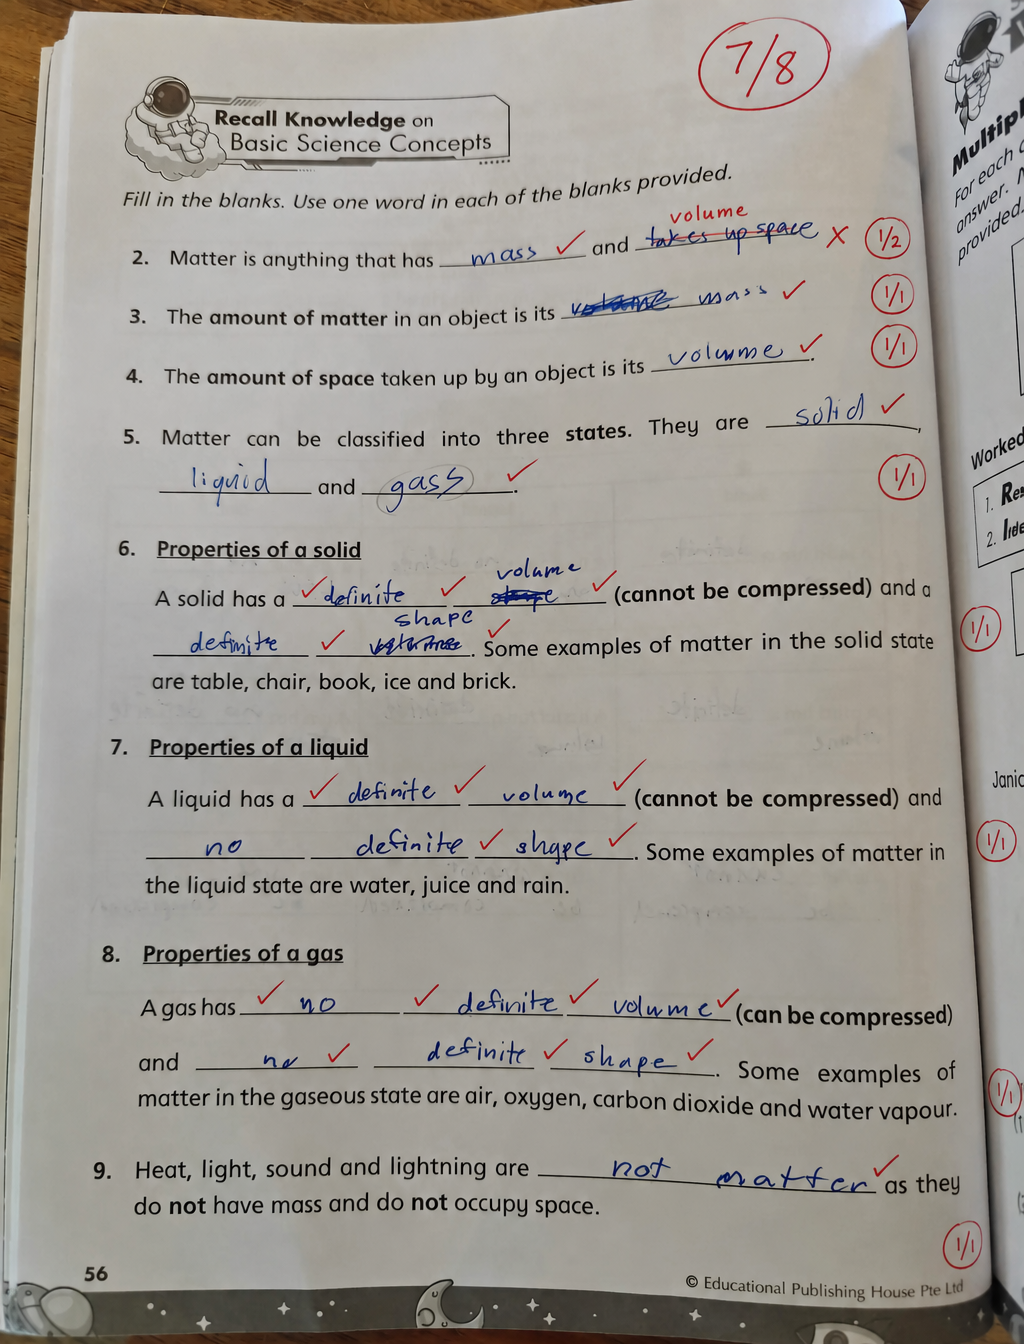 7/8
Recall Knowledge on
Basic Science Concepts
Fill in the blanks. Use one word in each of the blanks provided.
volume
2. Matter is anything that has mass ✓ and takes up space X 1/2
3. The amount of matter in an object is its volume mass ✓ 1/1
4. The amount of space taken up by an object is its volume ✓. 1/1
5. Matter can be classified into three states. They are solid ✓,
liquid and gass ✓. 1/1
6. Properties of a solid
volume
A solid has a ✓ definite ✓ shape ✓ (cannot be compressed) and a
shape
definite ✓ volume ✓. Some examples of matter in the solid state 1/1
are table, chair, book, ice and brick.
7. Properties of a liquid
A liquid has a ✓ definite ✓ volume ✓ (cannot be compressed) and
no definite ✓ shape ✓. Some examples of matter in 1/1
the liquid state are water, juice and rain.
8. Properties of a gas
A gas has ✓ no ✓ definite ✓ volume ✓ (can be compressed)
and no ✓ definite ✓ shape ✓. Some examples of
matter in the gaseous state are air, oxygen, carbon dioxide and water vapour. 1/1
9. Heat, light, sound and lightning are not matter ✓ as they
do not have mass and do not occupy space.
1/1
56
© Educational Publishing House Pte Ltd
For each
answer.
provided.
Worked
1.
2.